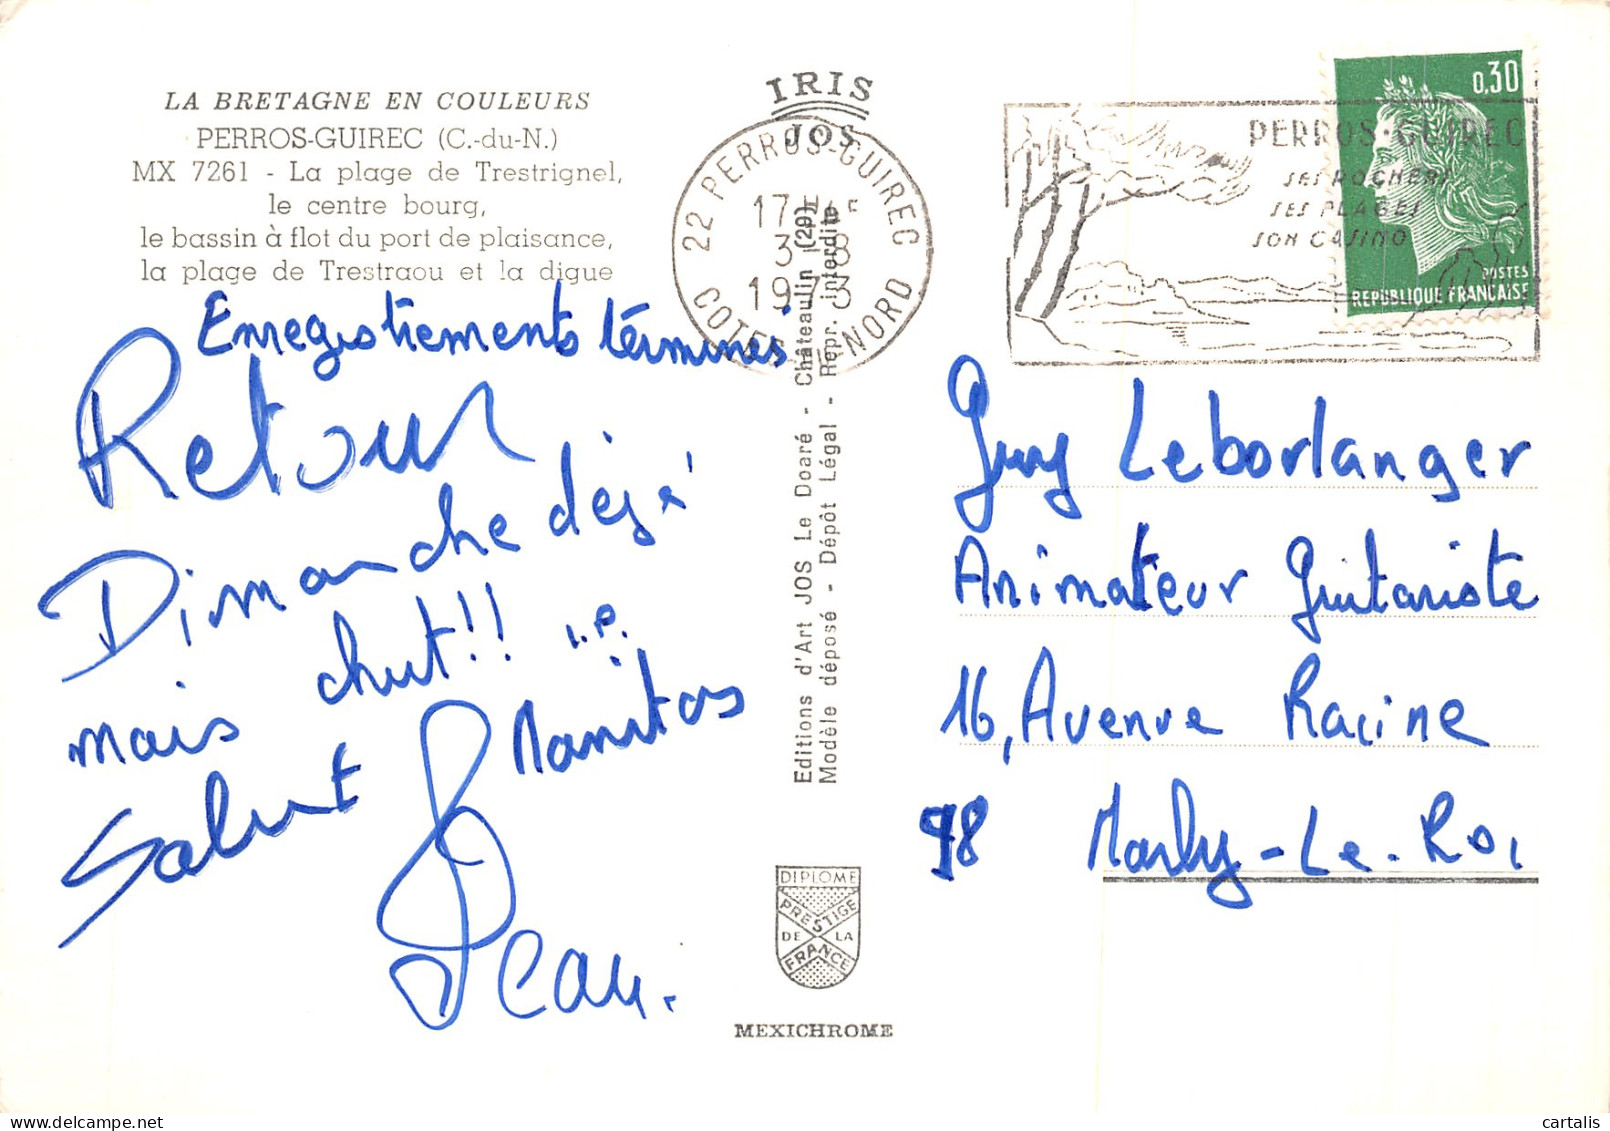 LA BRETAGNE EN COULEURS
PERROS-GUIREC (C.-du-N.)
MX 7261 - La plage de Trestrignel,
le centre bourg,
le bassin à flot du port de plaisance,
la plage de Trestraou et la digue
Enregistrements terminés
Retour
Dimanche déjà
mais chut!! ...
Salut Manitas
Jean.
IRIS
JOS
22 PERROS-GUIREC
17H
3-8
1973
COTES-DU-NORD
Editions d'Art JOS Le Doaré - Châteaulin (29)
Modèle déposé - Dépôt Légal - Repr. interdite
DIPLOME
PRESTIGE
DE LA
FRANCE
MEXICHROME
PERROS-GUIREC
SES ROCHERS
SES PLAGES
SON CASINO
0,30
POSTES
REPUBLIQUE FRANÇAISE
Guy Leborlanger
Animateur Guitariste
16, Avenue Racine
78 Marly-Le-Roi
cartalis